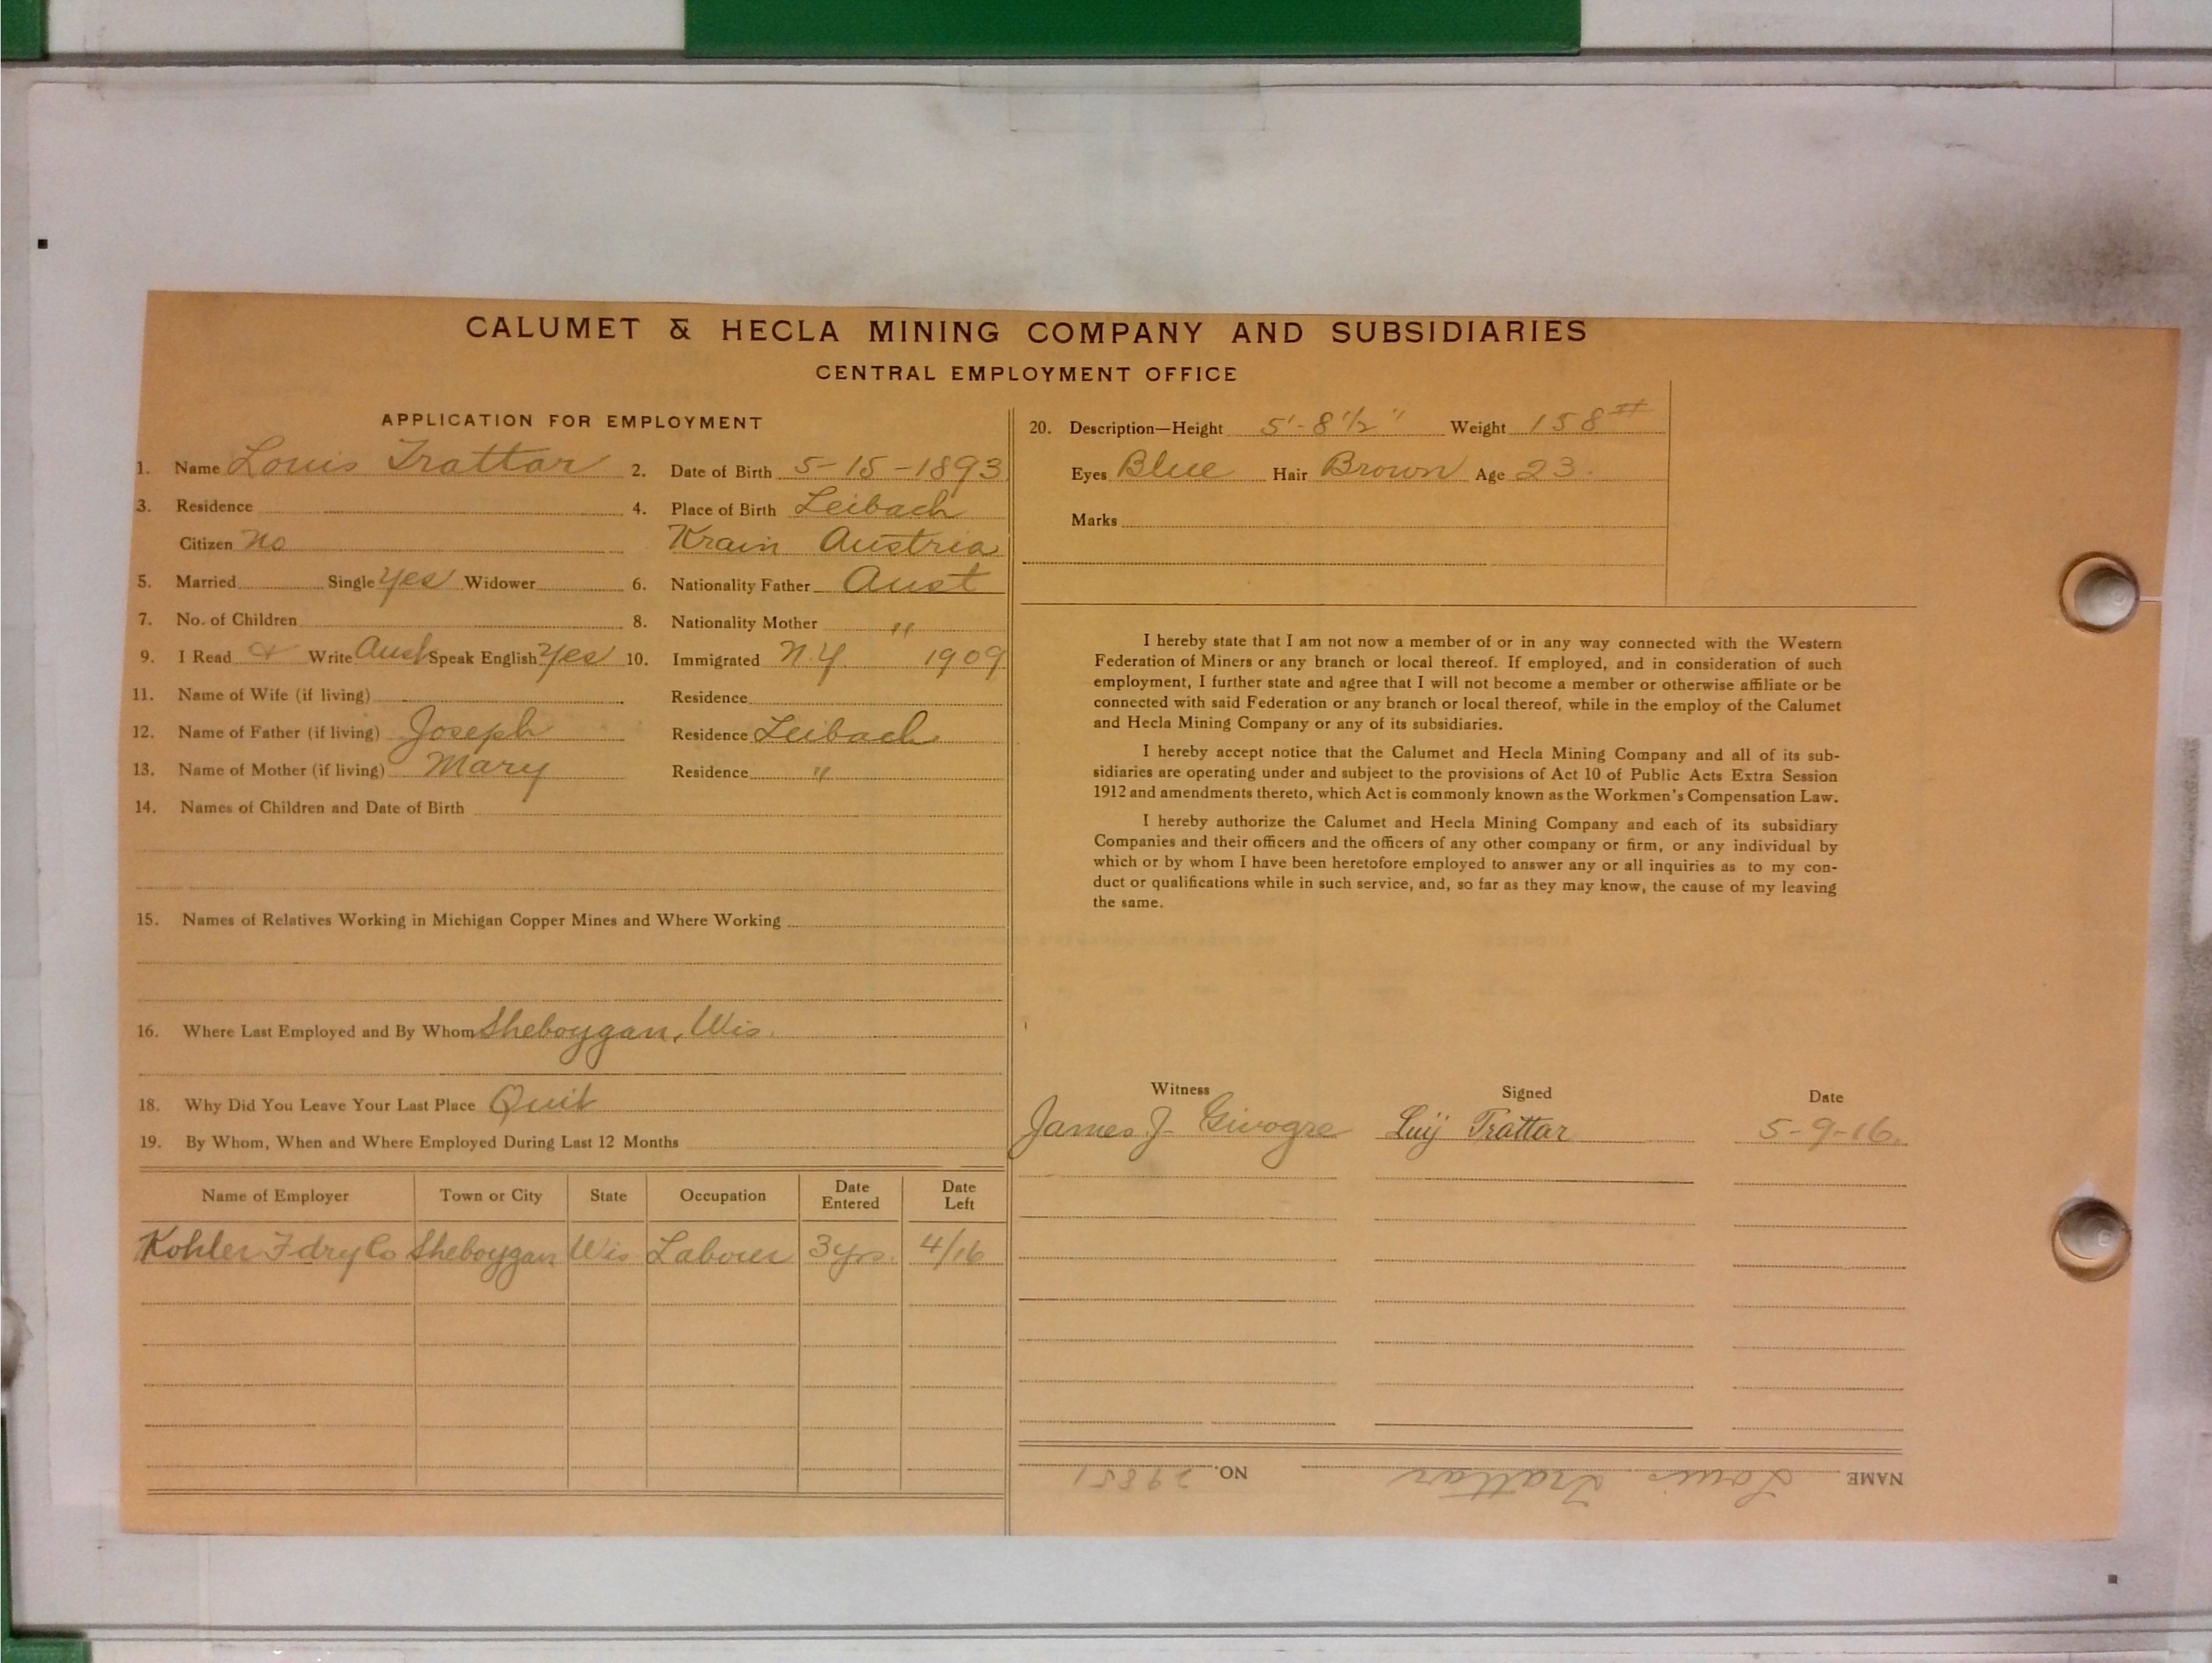 CALUMET & HECLA MINING COMPANY AND SUBSIDIARIES
CENTRAL EMPLOYMENT OFFICE
APPLICATION FOR EMPLOYMENT
1. Name Louis Trattar 2. Date of Birth 5-15-1893
3. Residence 4. Place of Birth Leibach
Citizen No Krain Austria
5. Married Single Yes Widower 6. Nationality Father Aust
7. No. of Children 8. Nationality Mother "
9. I Read & Write Aust Speak English Yes 10. Immigrated N.Y. 1909
11. Name of Wife (if living) Residence
12. Name of Father (if living) Joseph Residence Leibach
13. Name of Mother (if living) Mary Residence "
14. Names of Children and Date of Birth
15. Names of Relatives Working in Michigan Copper Mines and Where Working
16. Where Last Employed and By Whom Sheboygan, Wis.
18. Why Did You Leave Your Last Place Quit
19. By Whom, When and Where Employed During Last 12 Months
Name of Employer Town or City State Occupation Date Entered Date Left
Kohler Fdry Co Sheboygan Wis Laborer 3 yrs. 4/16
20. Description—Height 5'-8 1/2" Weight 158#
Eyes Blue Hair Brown Age 23.
Marks
I hereby state that I am not now a member of or in any way connected with the Western
Federation of Miners or any branch or local thereof. If employed, and in consideration of such
employment, I further state and agree that I will not become a member or otherwise affiliate or be
connected with said Federation or any branch or local thereof, while in the employ of the Calumet
and Hecla Mining Company or any of its subsidiaries.
I hereby accept notice that the Calumet and Hecla Mining Company and all of its sub-
sidiaries are operating under and subject to the provisions of Act 10 of Public Acts Extra Session
1912 and amendments thereto, which Act is commonly known as the Workmen's Compensation Law.
I hereby authorize the Calumet and Hecla Mining Company and each of its subsidiary
Companies and their officers and the officers of any other company or firm, or any individual by
which or by whom I have been heretofore employed to answer any or all inquiries as to my con-
duct or qualifications while in such service, and, so far as they may know, the cause of my leaving
the same.
Witness Signed Date
James J. Givogre Luij Trattar 5-9-16.
NAME Louis Trattar NO. 29851